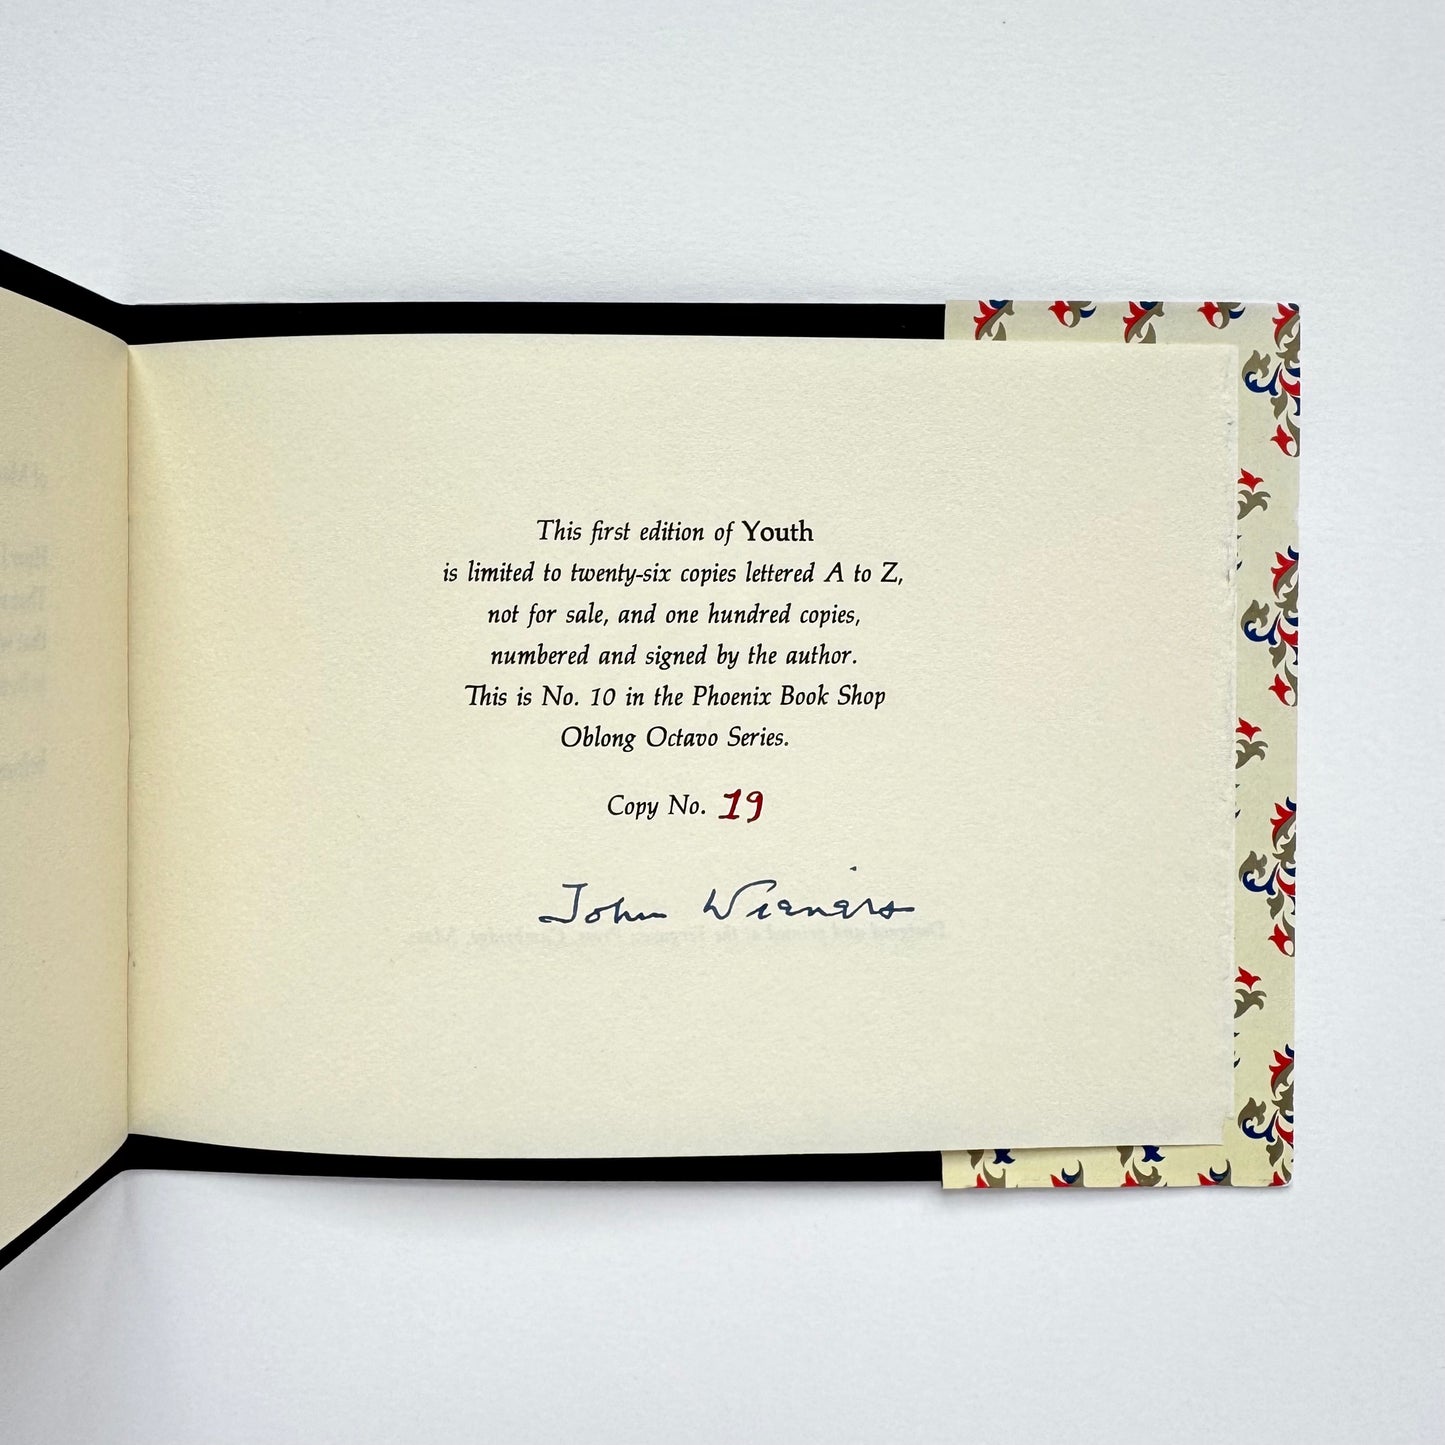 This first edition of Youth
is limited to twenty-six copies lettered A to Z,
not for sale, and one hundred copies,
numbered and signed by the author.
This is No. 10 in the Phoenix Book Shop
Oblong Octavo Series.
Copy No. 19
John Wieners